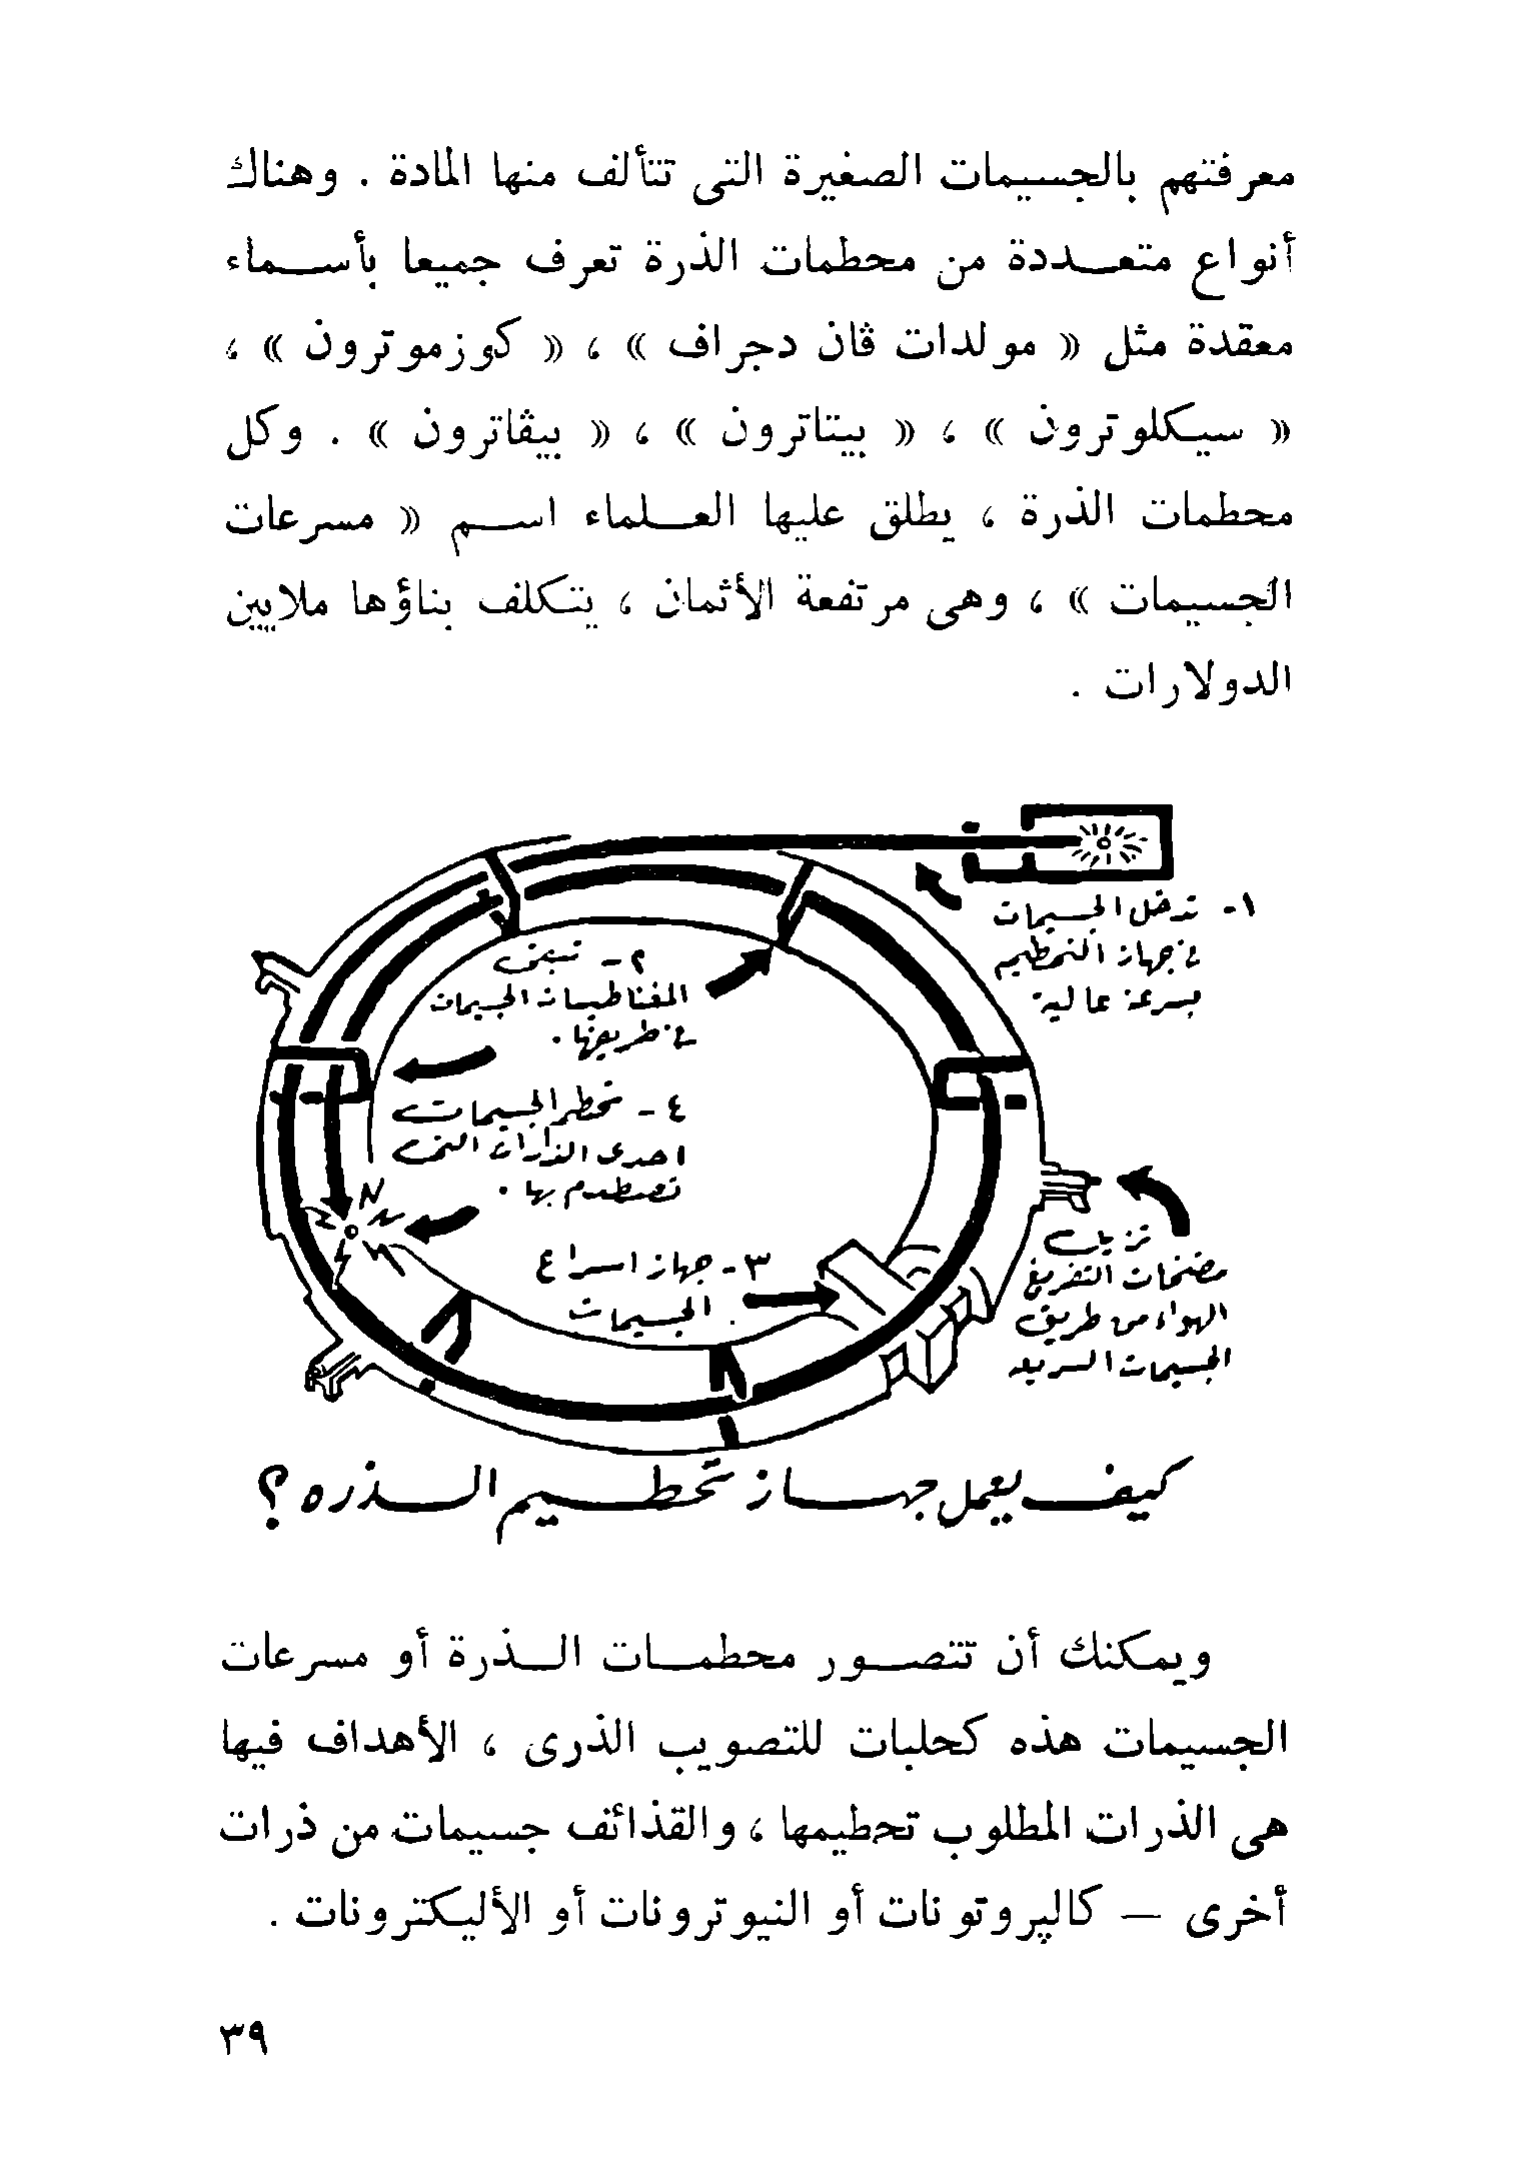 معرفتهم بالجسيمات الصغيرة التى تتألف منها المادة . وهناك
أنواع متعددة من محطمات الذرة تعرف جميعا بأسماء
معقدة مثل « مولدات ڤان دجراف » ، « كوزموترون » ،
« سيكلوترون » ، « بيتاترون » ، « بيڤاترون » . وكل
محطمات الذرة ، يطلق عليها العلماء اسم « مسرعات
الجسيمات » ، وهى مرتفعة الأثمان ، يتكلف بناؤها ملايين
الدولارات .
١- تدخل الجسيمات
فى جهاز التحطيم
بسرعة عالية
٢- تبقى
المغناطيسات الجسيمات
فى طريقها .
٤- تحطم الجسيمات
احدى الذرات التى
تصطدم بها .
٣- جهاز اسراع
الجسيمات
تزيل
مضخات التفريغ
الهواء من طريق
الجسيمات السريعة
كيف يعمل جهاز تحطيم الذره ؟
ويمكنك أن تتصور محطمات الذرة أو مسرعات
الجسيمات هذه كحلبات للتصويب الذرى ، الأهداف فيها
هى الذرات المطلوب تحطيمها ، والقذائف جسيمات من ذرات
أخرى — كالپروتونات أو النيوترونات أو الأليكترونات .
٣٩